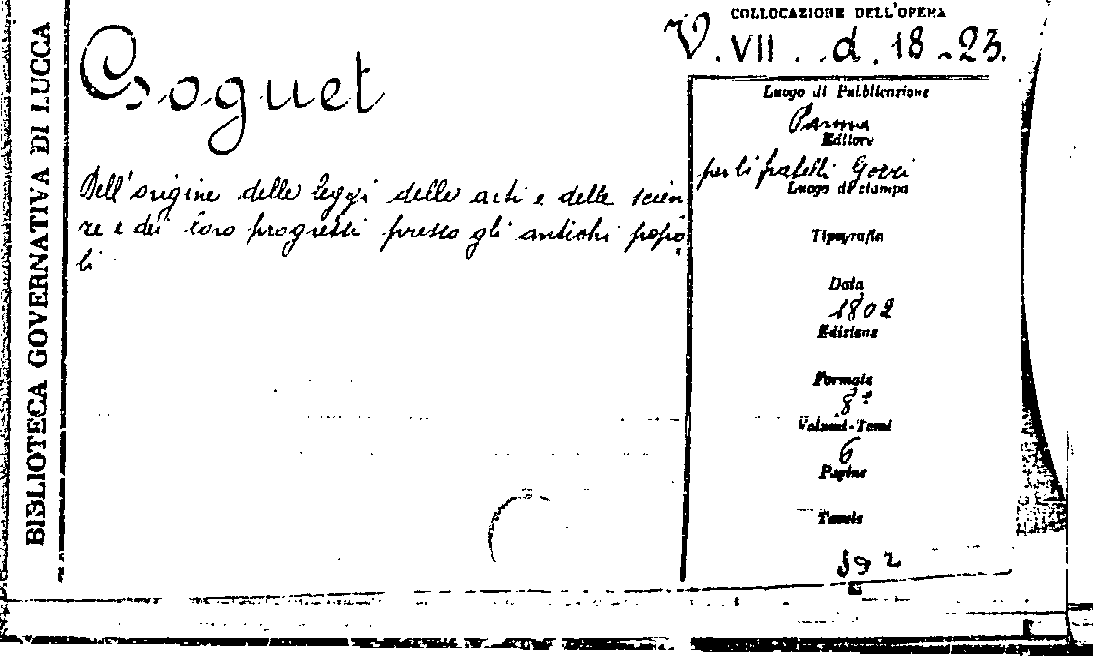 BIBLIOTECA GOVERNATIVA DI LUCCA
COLLOCAZIONE DELL'OPERA
V. VII. d. 18-23.
Goguet
Dell'origine delle leggi delle arti e delle scien
ze e dei loro progressi presso gli antichi popo
li
Luogo di Pubblicazione
Parma
Editore
per li fratelli Gozzi
Luogo di stampa
Tipografia
Data
1802
Edizione
Formato
8º
Volumi-Tomi
6
Pagine
Tavole